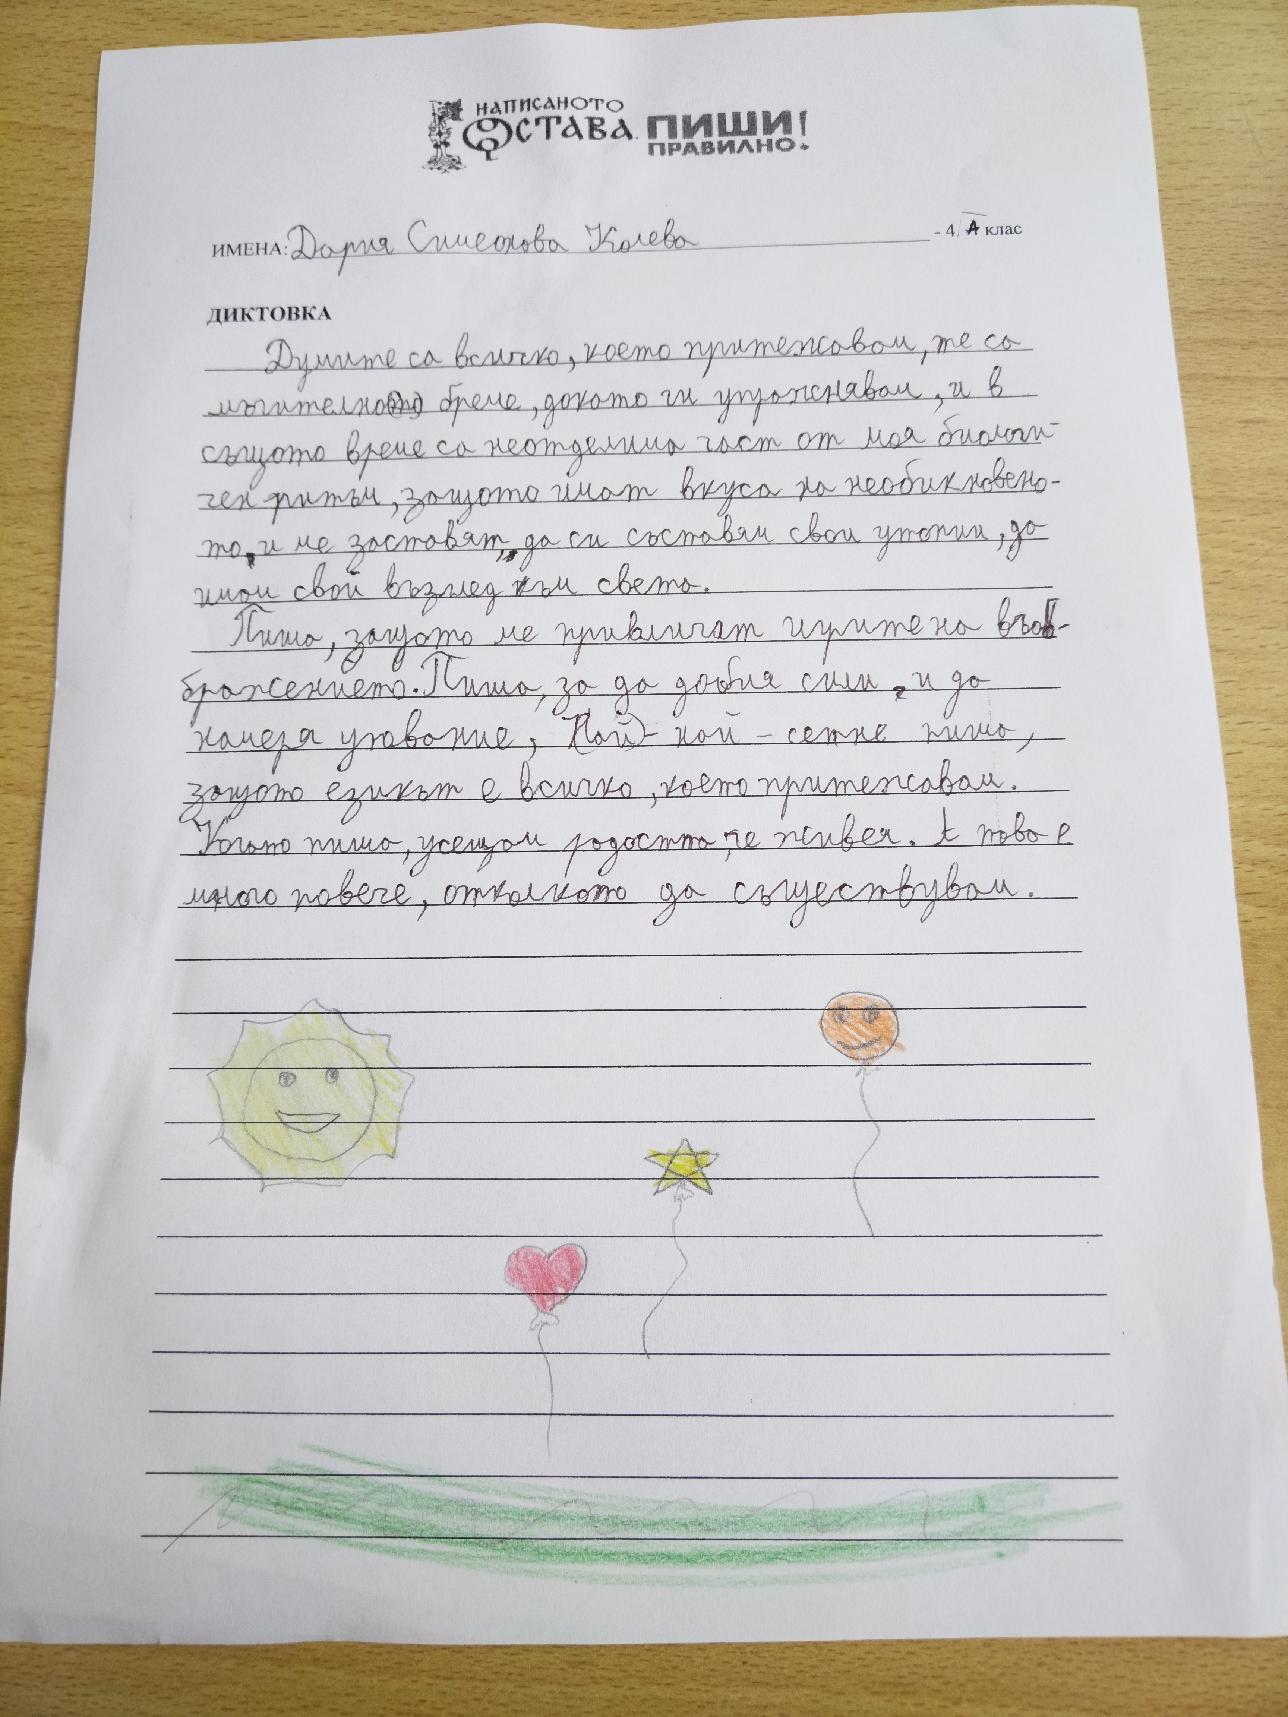 НАПИСАНОТО
ОСТАВА. ПИШИ
ПРАВИЛНО!
ИМЕНА: Дария Симеонова Колева - 4. А клас
ДИКТОВКА
Думите са всичко, което притежавам, те са
мъчително(то) бреме, докато ги упражнявам, и в
същото време са неотделима част от моя биологи-
чен ритъм, защото имат вкуса на необикновено-
то, и ме заставят, да си съставям свои утопии, да
имам свой възглед към света.
Пиша, защото ме привличат игрите на въоб-
бражението. Пиша, за да добия сили, и да
намеря упование, (Най)- най - сетне пиша,
защото езикът е всичко, което притежавам.
Когато пиша, усещам радостта, че живея. А това е
много повече, отколкото да съществувам.